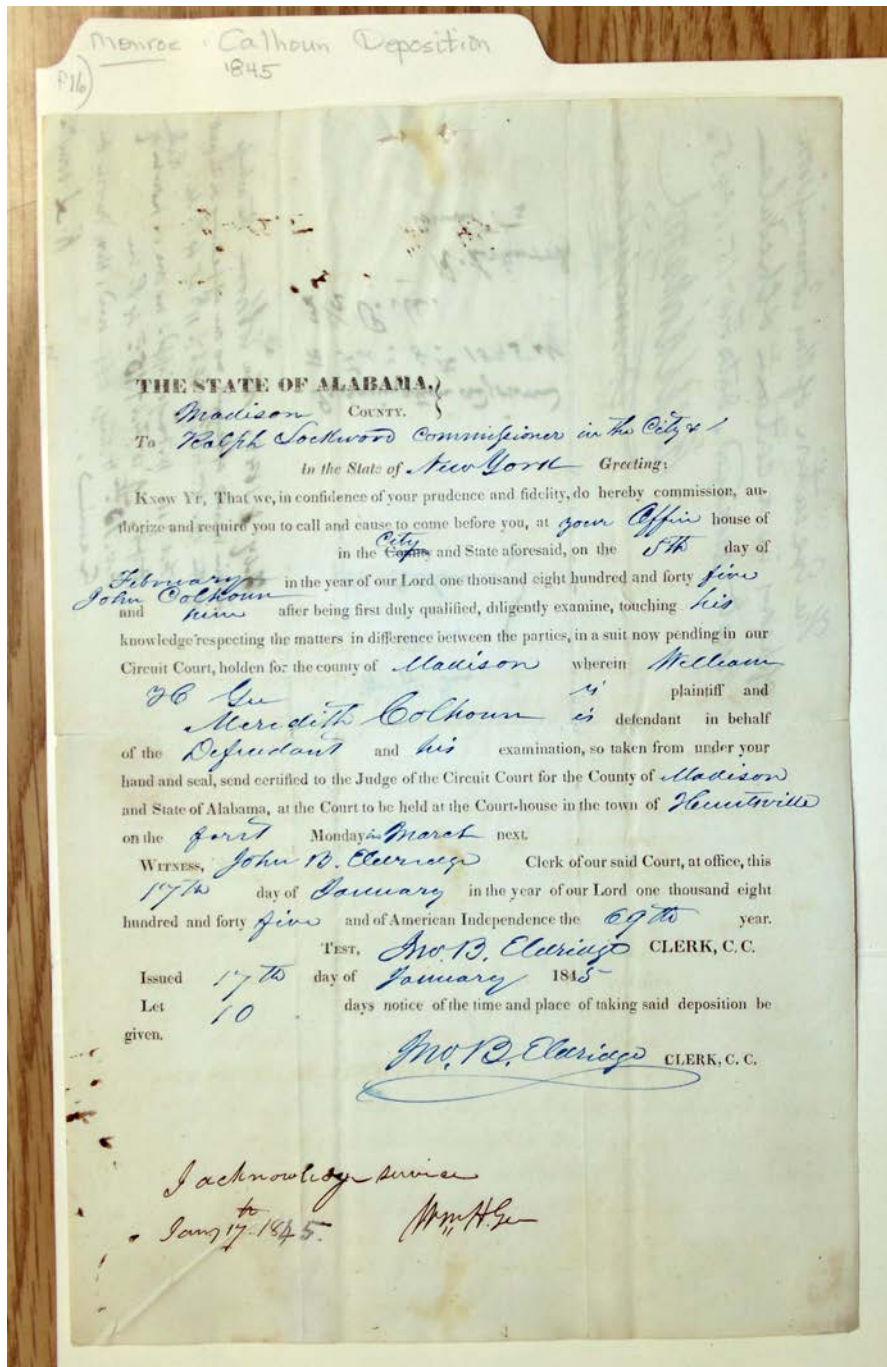 Monroe Calhoun Deposition
1845
P16)
THE STATE OF ALABAMA,}
Madison COUNTY.
To Ralph Lockwood Commissioner in the City &
in the State of New York Greeting:
KNOW YE, That we, in confidence of your prudence and fidelity, do hereby commission, au-
thorize and require you to call and cause to come before you, at your Office house of
in the County City and State aforesaid, on the 5th day of
February in the year of our Lord one thousand eight hundred and forty five
John Colhoun
and him after being first duly qualified, diligently examine, touching his
knowledge respecting the matters in difference between the parties, in a suit now pending in our
Circuit Court, holden for the county of Madison wherein William
H Gee is plaintiff and
Meredith Colhoun is defendant in behalf
of the Defendant and his examination, so taken from under your
hand and seal, send certified to the Judge of the Circuit Court for the County of Madison
and State of Alabama, at the Court to be held at the Court-house in the town of Huntsville
on the first Monday in March next.
WITNESS, John B. Eldridge Clerk of our said Court, at office, this
17th day of January in the year of our Lord one thousand eight
hundred and forty five and of American Independence the 69th year.
TEST, Jno. B. Eldridge CLERK, C. C.
Issued 17th day of January 1845
Let 10 days notice of the time and place of taking said deposition be
given.
Jno. B. Eldridge CLERK, C. C.
I acknowledge service
Jany 17th 1845. Wm H Gee